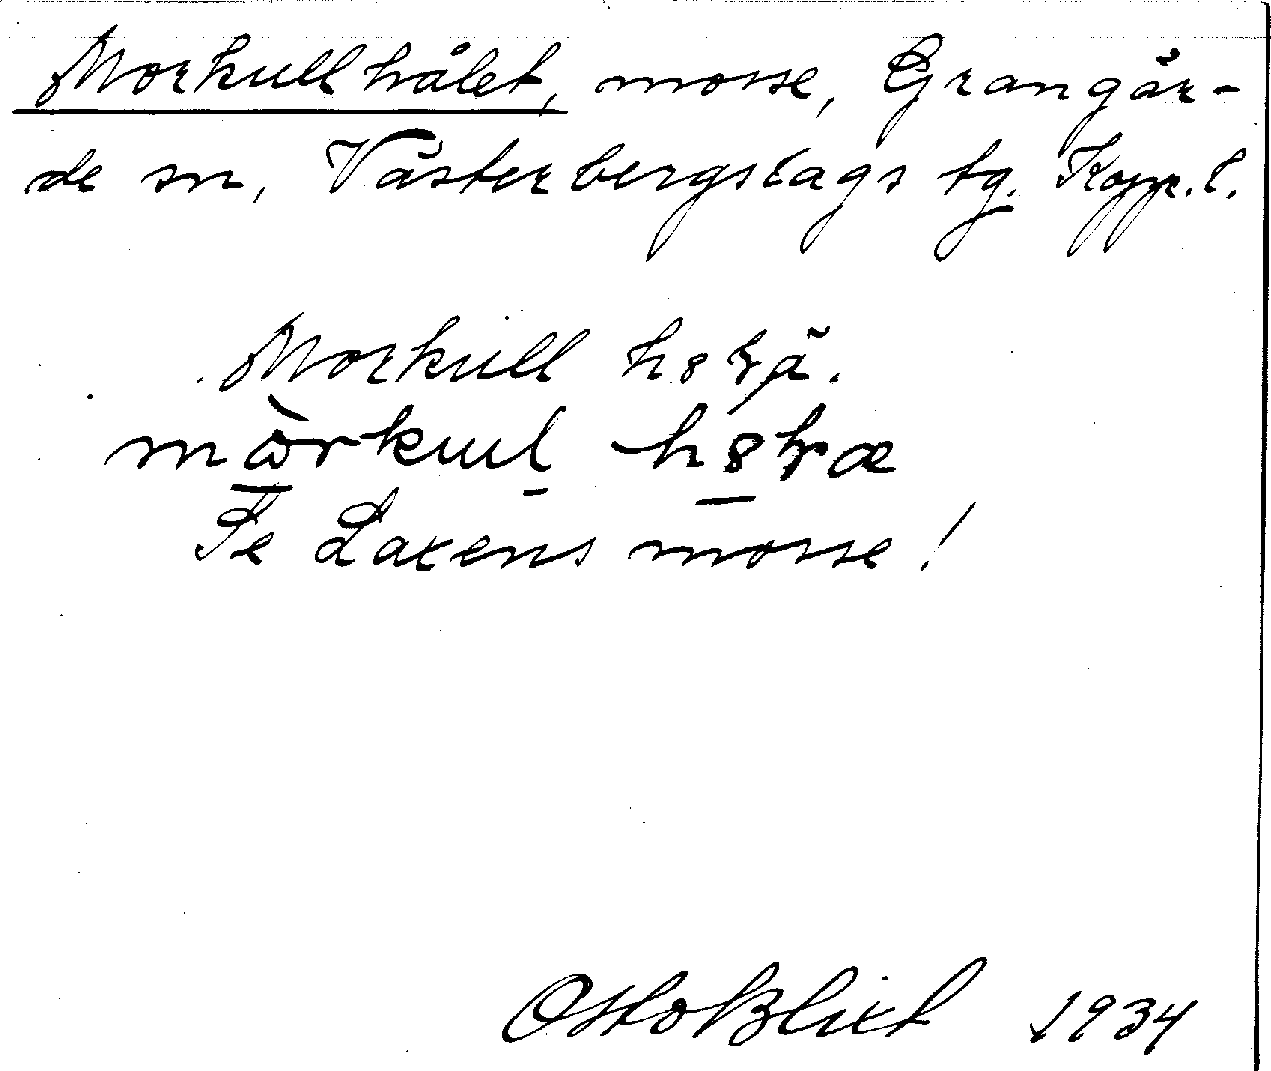 Morkullhålet, mosse, Grangär-
de sn, Västerbergslags tg. Kopp. l.
Morkull
Se Laxens mosse!
Otto Blixt 1934